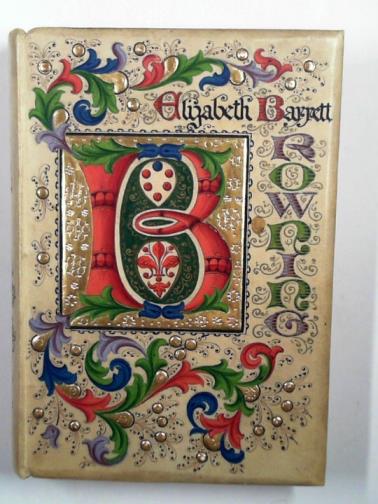 Elizabeth Barrett
BROWNING